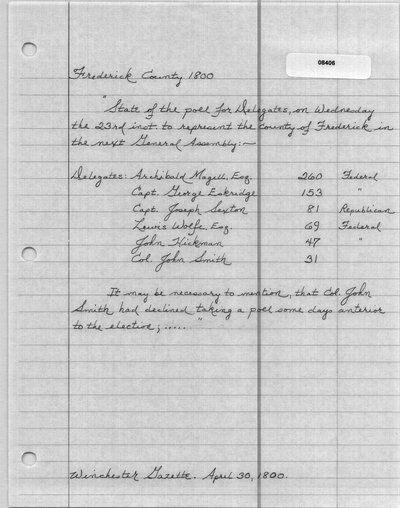 08406
Frederick County 1800
"State of the poll for Delegates, on Wednesday
the 23rd inst. to represent the County of Frederick in
the next General Assembly:—
Delegates: Archibald Magell, Esq. 260 Federal
Capt. George Eskridge 153 "
Capt. Joseph Sexton 81 Republican
Lewis Wolfe, Esq. 69 Federal
John Hickman 47 "
Col. John Smith 31
It may be necessary to mention, that Col. John
Smith had declined taking a poll some days anterior
to the elective; ..... "
Winchester Gazette. April 30, 1800.